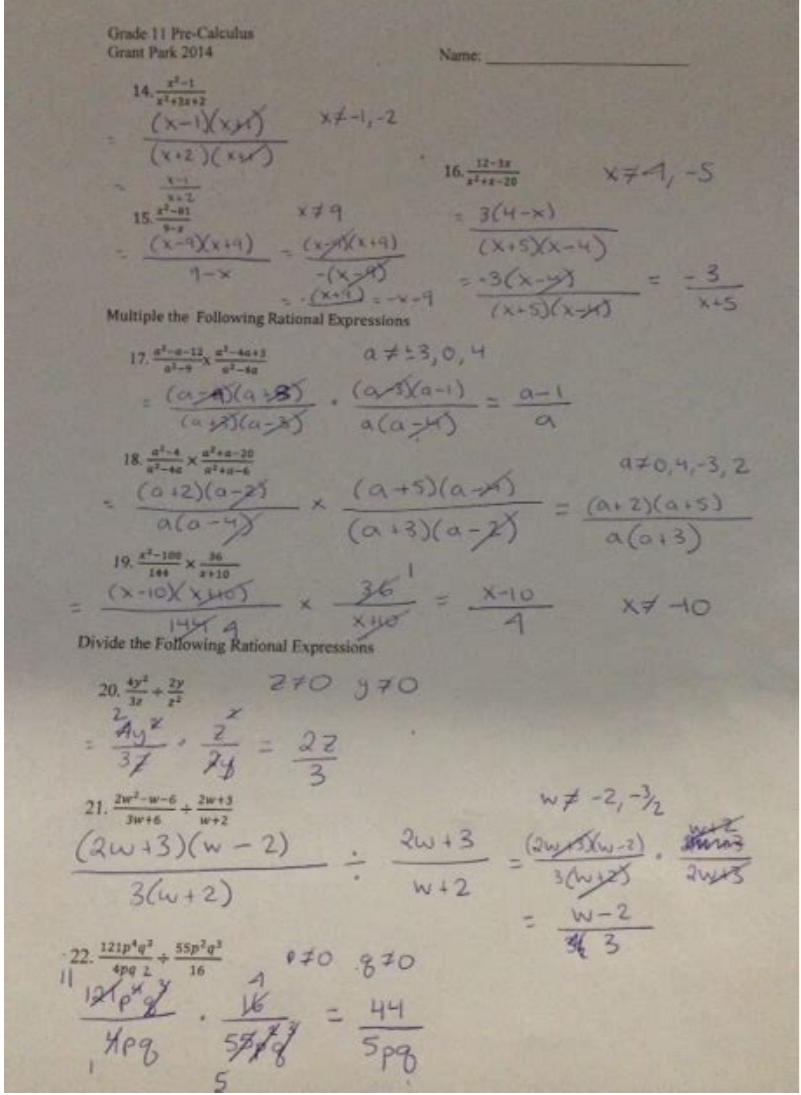 Grade 11 Pre-Calculus
Grant Park 2014
Name:
14. (x²-1)/(x²+3x+2)
x≠-1,-2
= (x-1)(x+1)/(x+2)(x+1)
= (x-1)/(x+2)
15. (x²-81)/(9-x)
x≠9
= (x-9)(x+9)/(9-x) = (x-9)(x+9)/-(x-9)
= -(x+9) = -x-9
16. (12-3x)/(x²+x-20)
x≠4, -5
= 3(4-x)/(x+5)(x-4)
= -3(x-4)/(x+5)(x-4) = -3/(x+5)
Multiple the Following Rational Expressions
17. (a²-a-12)/(a²-9) x (a²-4a+3)/(a²-4a)
a≠±3,0,4
= (a-4)(a+3)/(a+3)(a-3) · (a-3)(a-1)/a(a-4) = (a-1)/a
18. (a²-4)/(a²-4a) × (a²+a-20)/(a²+a-6)
a≠0,4,-3,2
= (a+2)(a-2)/a(a-4) × (a+5)(a-4)/(a+3)(a-2) = (a+2)(a+5)/a(a+3)
19. (x²-100)/144 × 36/(x+10)
= (x-10)(x+10)/144 4 × 36 1/(x+10) = (x-10)/4 x≠-10
Divide the Following Rational Expressions
20. 4y²/3z ÷ 2y/z²
z≠0 y≠0
= 2 4y²/3z · z²/2y = 2z/3
21. (2w²-w-6)/(3w+6) ÷ (2w+3)/(w+2)
w≠-2,-3/2
(2w+3)(w-2)/3(w+2) ÷ (2w+3)/(w+2) = (2w+3)(w-2)/3(w+2) · (w+2)/(2w+3)
= (w-2)/3
22. 121p⁴q²/4pq 2 ÷ 55p²q³/16
p≠0 q≠0
11 121p⁴q²/4pq 1 · 4 16/55p²q³ 5 = 44/5pq